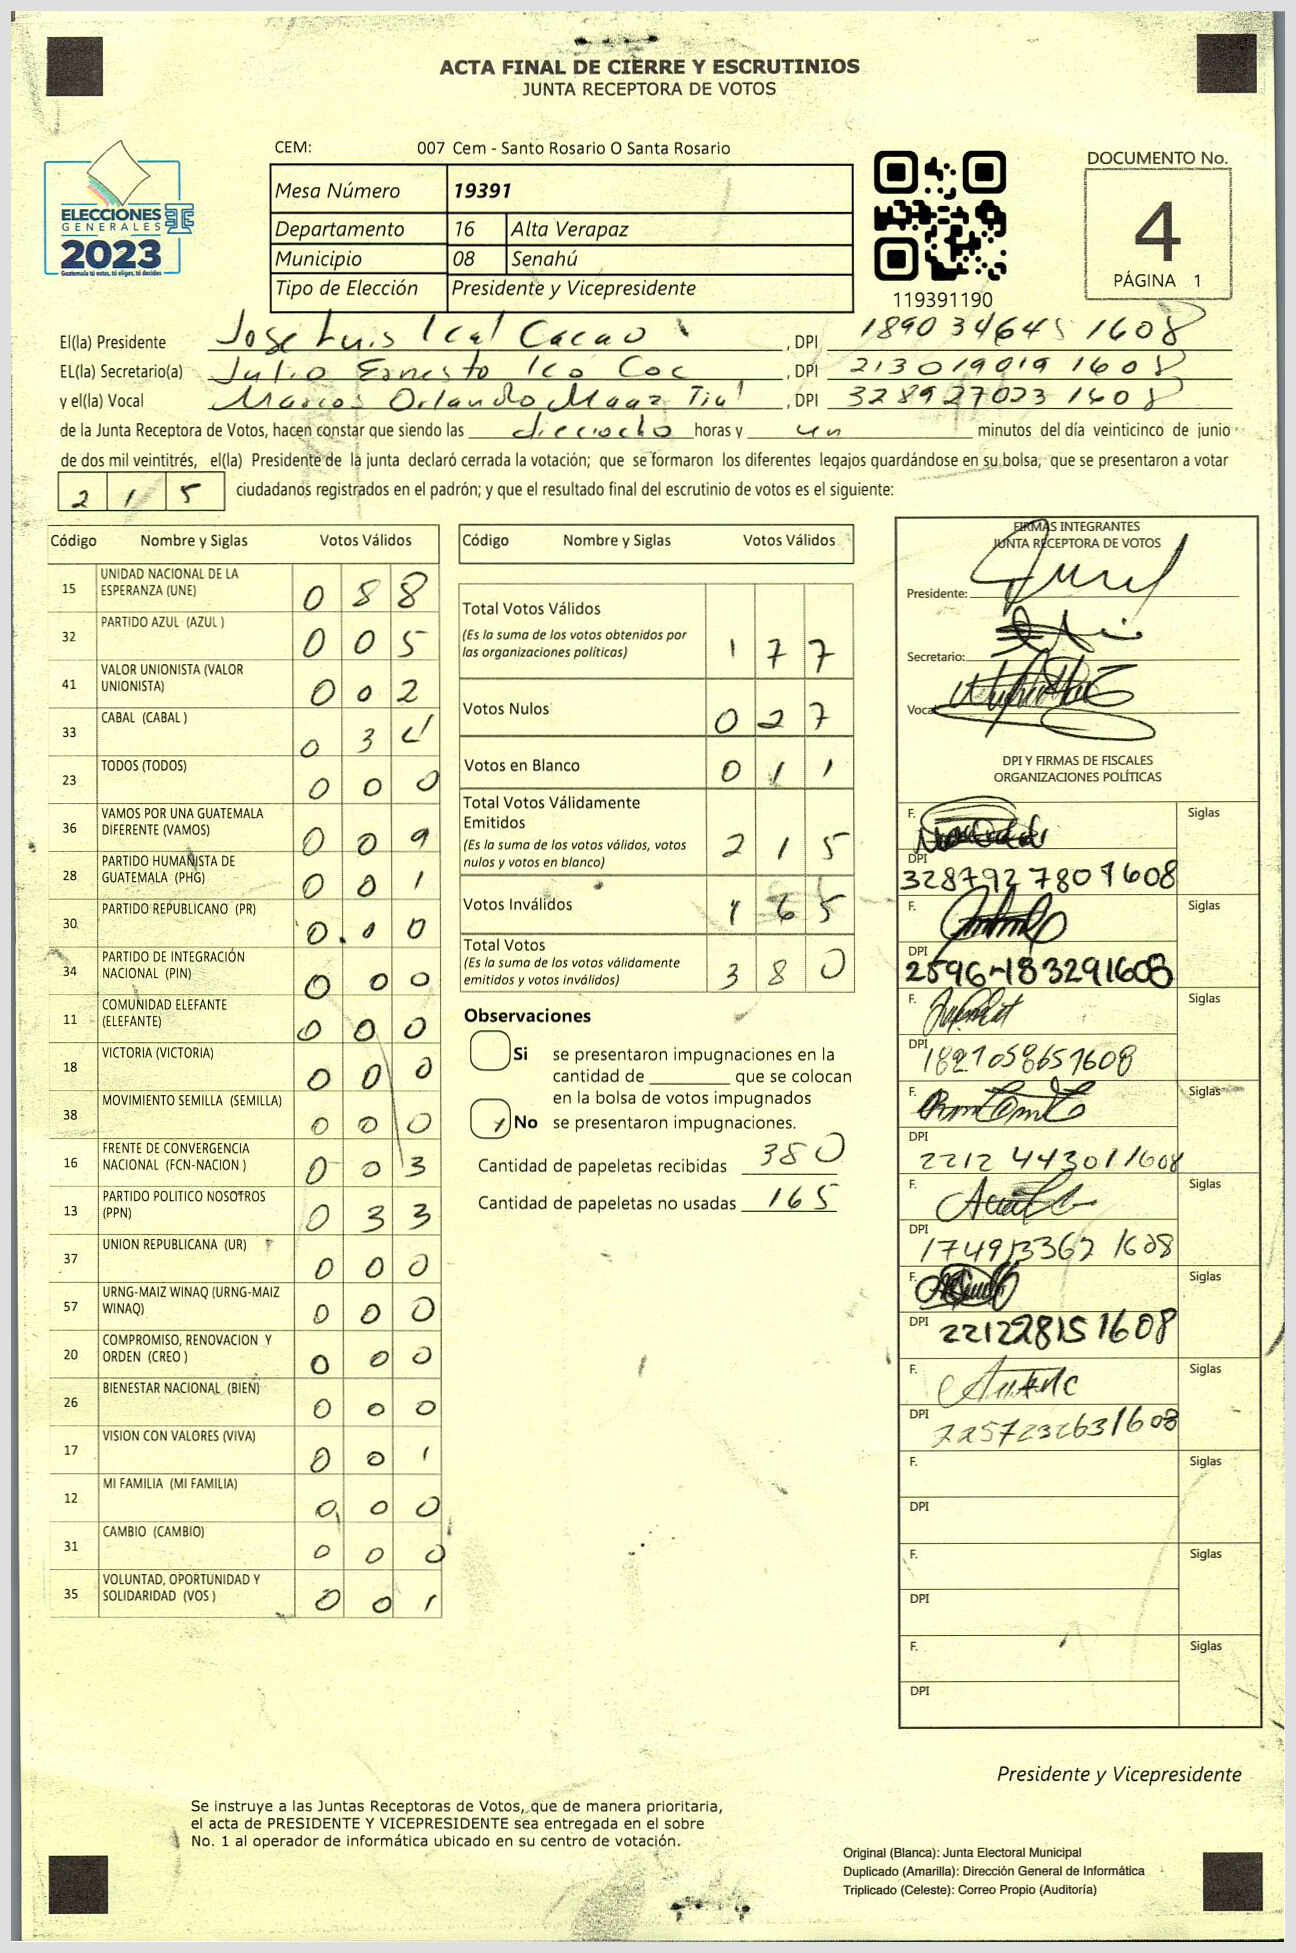 ACTA FINAL DE CIERRE Y ESCRUTINIOS
JUNTA RECEPTORA DE VOTOS
CEM: 007 Cem - Santo Rosario O Santa Rosario
ELECCIONES
GENERALES
2023
Guatemala tú votas, tú eliges, tú decides
Mesa Número 19391
Departamento 16 Alta Verapaz
Municipio 08 Senahú
Tipo de Elección Presidente y Vicepresidente
119391190
DOCUMENTO No.
4
PÁGINA 1
El(la) Presidente Jose Luis Ical Cacao, DPI 1890 34645 1608
EL(la) Secretario(a) Julio Ernesto Ico Coc, DPI 213019019 1608
y el(la) Vocal Marcos Orlando Maaz Tiul, DPI 328927023 1608
de la Junta Receptora de Votos, hacen constar que siendo las dieciocho horas y un minutos del día veinticinco de junio
de dos mil veintitrés, el(la) Presidente de la junta declaró cerrada la votación; que se formaron los diferentes legajos guardándose en su bolsa, que se presentaron a votar
215 ciudadanos registrados en el padrón; y que el resultado final del escrutinio de votos es el siguiente:
Código Nombre y Siglas Votos Válidos
15 UNIDAD NACIONAL DE LA ESPERANZA (UNE) 088
32 PARTIDO AZUL (AZUL ) 005
41 VALOR UNIONISTA (VALOR UNIONISTA) 002
33 CABAL (CABAL ) 034
23 TODOS (TODOS) 000
36 VAMOS POR UNA GUATEMALA DIFERENTE (VAMOS) 009
28 PARTIDO HUMANISTA DE GUATEMALA (PHG) 001
30 PARTIDO REPUBLICANO (PR) 000
34 PARTIDO DE INTEGRACIÓN NACIONAL (PIN) 000
11 COMUNIDAD ELEFANTE (ELEFANTE) 000
18 VICTORIA (VICTORIA) 000
38 MOVIMIENTO SEMILLA (SEMILLA) 000
16 FRENTE DE CONVERGENCIA NACIONAL (FCN-NACION ) 003
13 PARTIDO POLITICO NOSOTROS (PPN) 033
37 UNION REPUBLICANA (UR) 000
57 URNG-MAIZ WINAQ (URNG-MAIZ WINAQ) 000
20 COMPROMISO, RENOVACION Y ORDEN (CREO ) 000
26 BIENESTAR NACIONAL (BIEN) 000
17 VISION CON VALORES (VIVA) 001
12 MI FAMILIA (MI FAMILIA) 000
31 CAMBIO (CAMBIO) 000
35 VOLUNTAD, OPORTUNIDAD Y SOLIDARIDAD (VOS ) 001
Código Nombre y Siglas Votos Válidos
Total Votos Válidos
(Es la suma de los votos obtenidos por
las organizaciones políticas) 177
Votos Nulos 027
Votos en Blanco 011
Total Votos Válidamente
Emitidos
(Es la suma de los votos válidos, votos
nulos y votos en blanco) 215
Votos Inválidos 165
Total Votos
(Es la suma de los votos válidamente
emitidos y votos inválidos) 380
Observaciones
Si se presentaron impugnaciones en la
cantidad de ________ que se colocan
en la bolsa de votos impugnados
No se presentaron impugnaciones.
Cantidad de papeletas recibidas 380
Cantidad de papeletas no usadas 165
FIRMAS INTEGRANTES
JUNTA RECEPTORA DE VOTOS
Presidente:
Secretario:
Vocal
DPI Y FIRMAS DE FISCALES
ORGANIZACIONES POLÍTICAS
F. Siglas
DPI 328792780 1608
F. Siglas
DPI 2596-183291608
F. Siglas
DPI 1821058651608
F. Siglas
DPI 2212 443011608
F. Siglas
DPI 174913362 1608
F. Siglas
DPI 221228151608
F. Siglas
DPI 2257232631608
F. Siglas
DPI
F. Siglas
DPI
F. Siglas
DPI
Presidente y Vicepresidente
Se instruye a las Juntas Receptoras de Votos, que de manera prioritaria,
el acta de PRESIDENTE Y VICEPRESIDENTE sea entregada en el sobre
No. 1 al operador de informática ubicado en su centro de votación.
Original (Blanca): Junta Electoral Municipal
Duplicado (Amarilla): Dirección General de Informática
Triplicado (Celeste): Correo Propio (Auditoría)